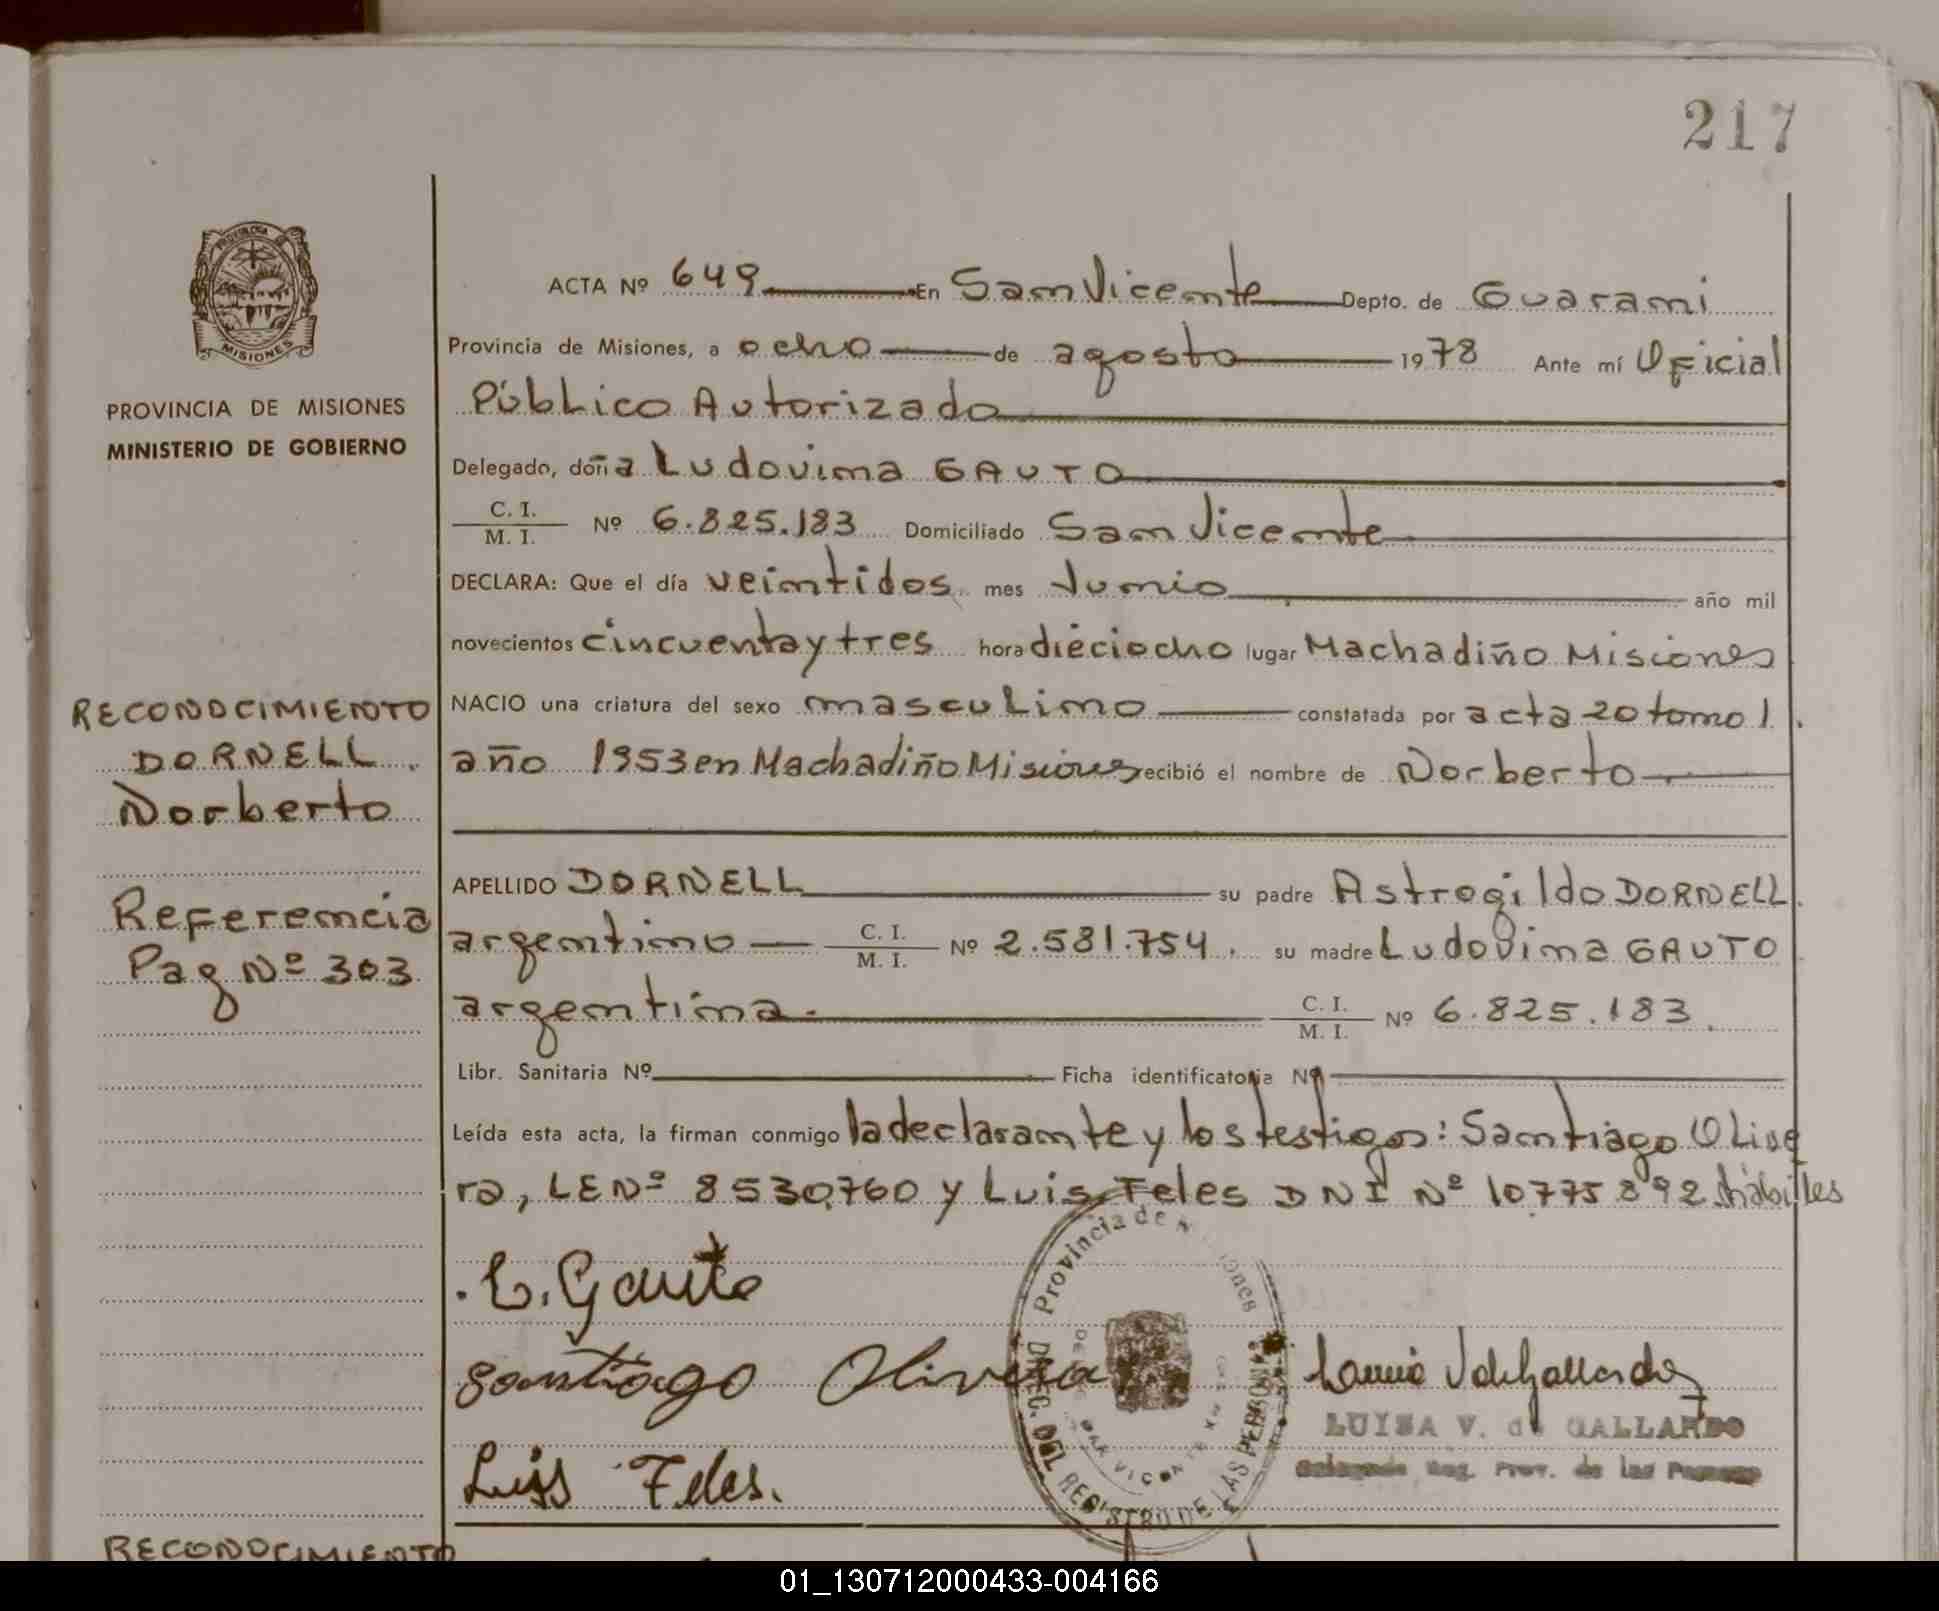 217
ACTA Nº 649 En San Vicente Depto. de Guaraní
Provincia de Misiones, a ocho de agosto 1978 Ante mí Oficial
Público Autorizado
PROVINCIA DE MISIONES
MINISTERIO DE GOBIERNO
Delegado, doña Ludovina GAUTO
C. I.
M. I. Nº 6.825.183 Domiciliado San Vicente
DECLARA: Que el día veintidos mes Junio año mil
novecientos cincuenta y tres hora dieciocho lugar Machadiño Misiones
NACIO una criatura del sexo masculino constatada por acta 20 tomo 1.
año 1953 en Machadiño Misiones recibió el nombre de Norberto
RECONOCIMIENTO
DORNELL
Norberto
Referencia
Pag Nº 303
APELLIDO DORNELL su padre Astrogildo DORNELL.
argentino C. I.
M. I. Nº 2.581.754. su madre Ludovina GAUTO
argentina. C. I.
M. I. Nº 6.825.183.
Libr. Sanitaria Nº Ficha identificatoria Nº
Leída esta acta, la firman conmigo la declarante y los testigos: Santiago Olive
ra, LE Nº 8530.760 y Luis Feles DNI Nº 10775892 hábiles
L. Gauto
Santiago Olivera
Luis Feles.
Provincia de Misiones
DIREC. DEL REGISTRO DE LAS PERSONAS
SAN VICENTE
LUISA V. de GALLARDO
Delegada Reg. Prov. de las Personas
RECONOCIMIENTO
01_130712000433-004166